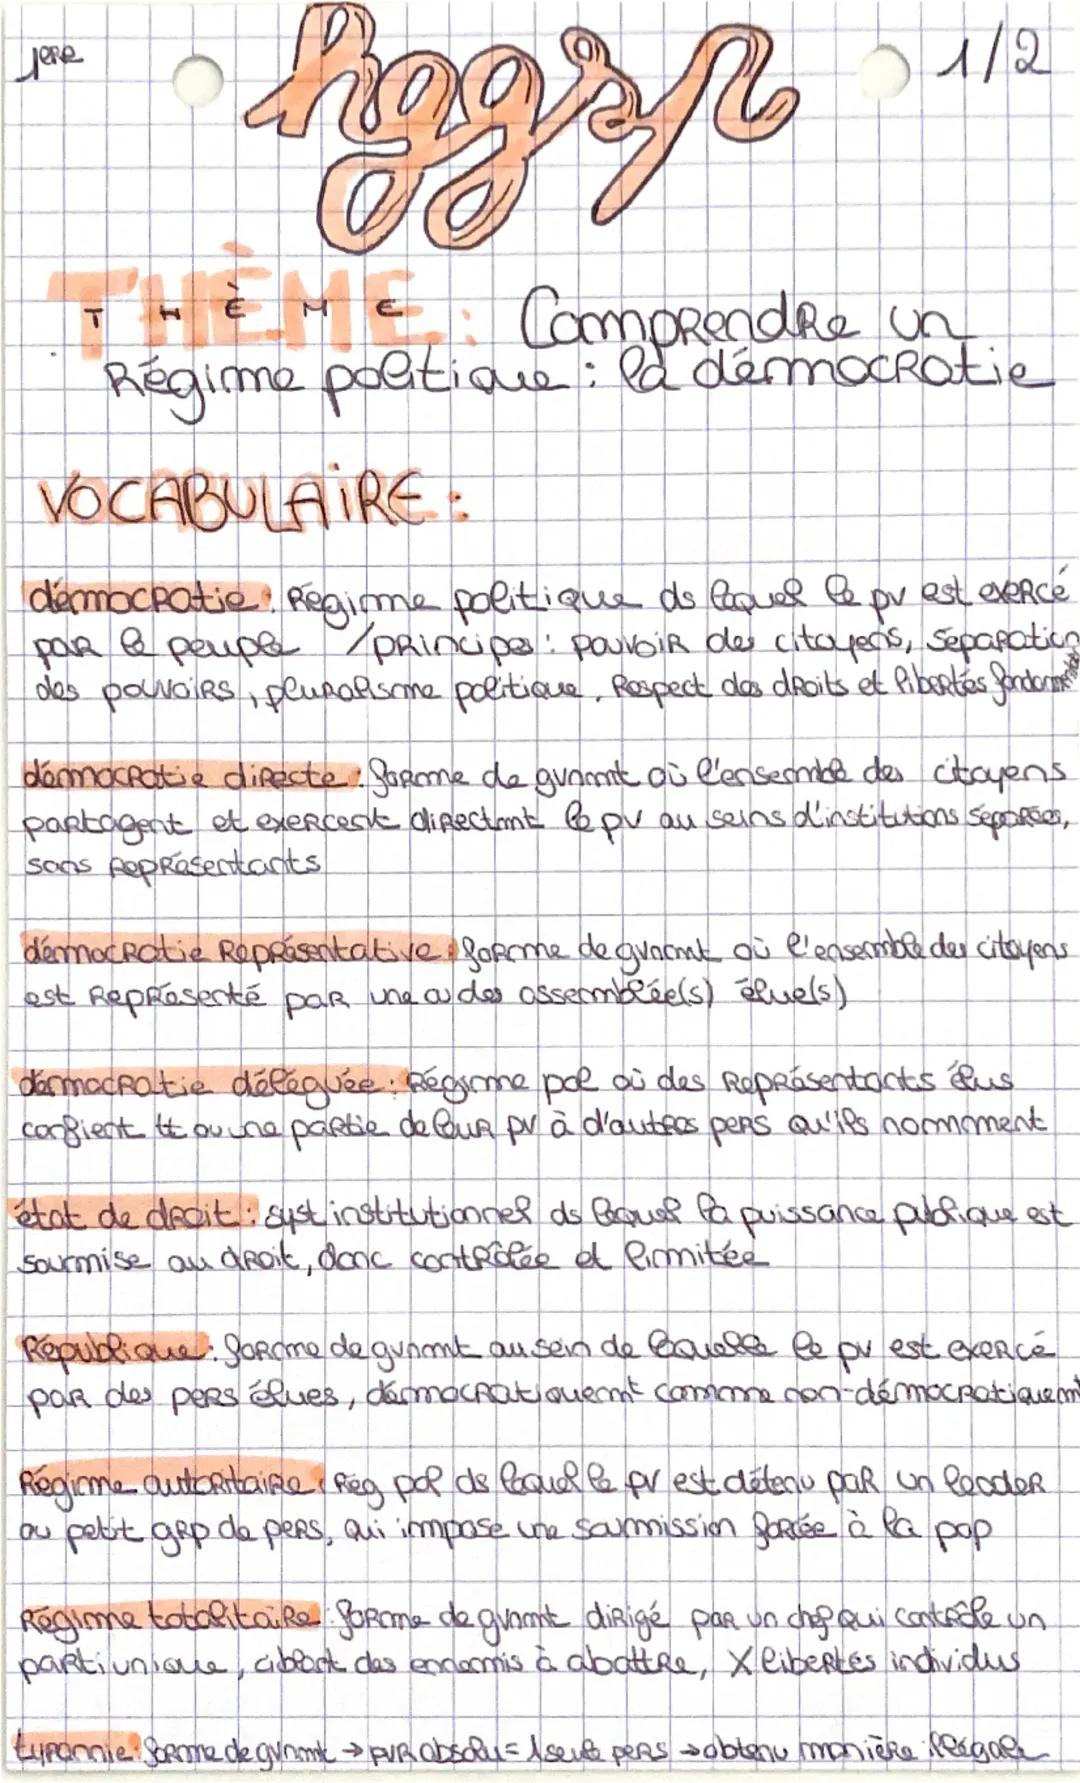 1ere
hggsp
1/2
THÈME : Comprendre un
T H È M E
Régime politique : la démocratie
VOCABULAIRE :
démocratie : Régime politique ds lequel le pv est exercé
par le peuple / principes : pouvoir des citoyens, séparation
des pouvoirs, pluralisme politique, Respect des droits et libertés
démocratie directe : forme de gvnmt où l'ensemble des citoyens
partagent et exercent directmt le pv au seins d'institutions séparées,
sans représentants
démocratie Représentative : forme de gvnmt où l'ensemble des citoyens
est Représenté par une ou des assemblée(s) élue(s)
démocratie déléguée : Régime pol où des Représentants élus
confient tt ou une partie de leur pv à d'autres pers qu'ils nomment
état de droit : syst institutionnel ds lequel la puissance publique est
soumise au droit, donc contrôlée et limitée
République : forme de gvnmt au sein de laquelle le pv est exercé
par des pers élues, démocratiquemnt comme non-démocratiquemnt
Régime autoritaire : Rég pol ds lequel le pv est détenu par un leader
ou petit grp de pers, qui impose une soumission forcée à la pop
Régime totalitaire : forme de gvnmt dirigé par un chef qui contrôle un
parti unique, ciblant des ennemis à abattre, X libertés individus
tyrannie : forme de gvnmt → pvR absolu = 1 seule pers → obtenu manière